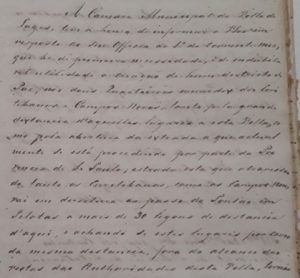 A Camara Municipal da Villa de
Lages, tem a honra de informar a
resposta ao seu Officio de 5 do corrente mez,
que he de primeira necessidade, e de
utilidade a creação de hum districto de
Paz, nos dous Quarteirões dos Cori
tibanos e Campos Novos, tanto pela grande
distancia d'aquelles lugares a esta Villa,
mo pela abertura da estrada a que actual
mente se está procedendo por parte da Pro
vincia de S. Paulo, estrada esta que
tanto os Coritibanos, como os Campos Novos
vai em ao passo do Pontão em
Pelotas a mais de 30 legoas de distancia
d'aqui, e achando-se estes lugares
da mesma distancia, fora do alcance das
vistas das Authoridades desta Villa,